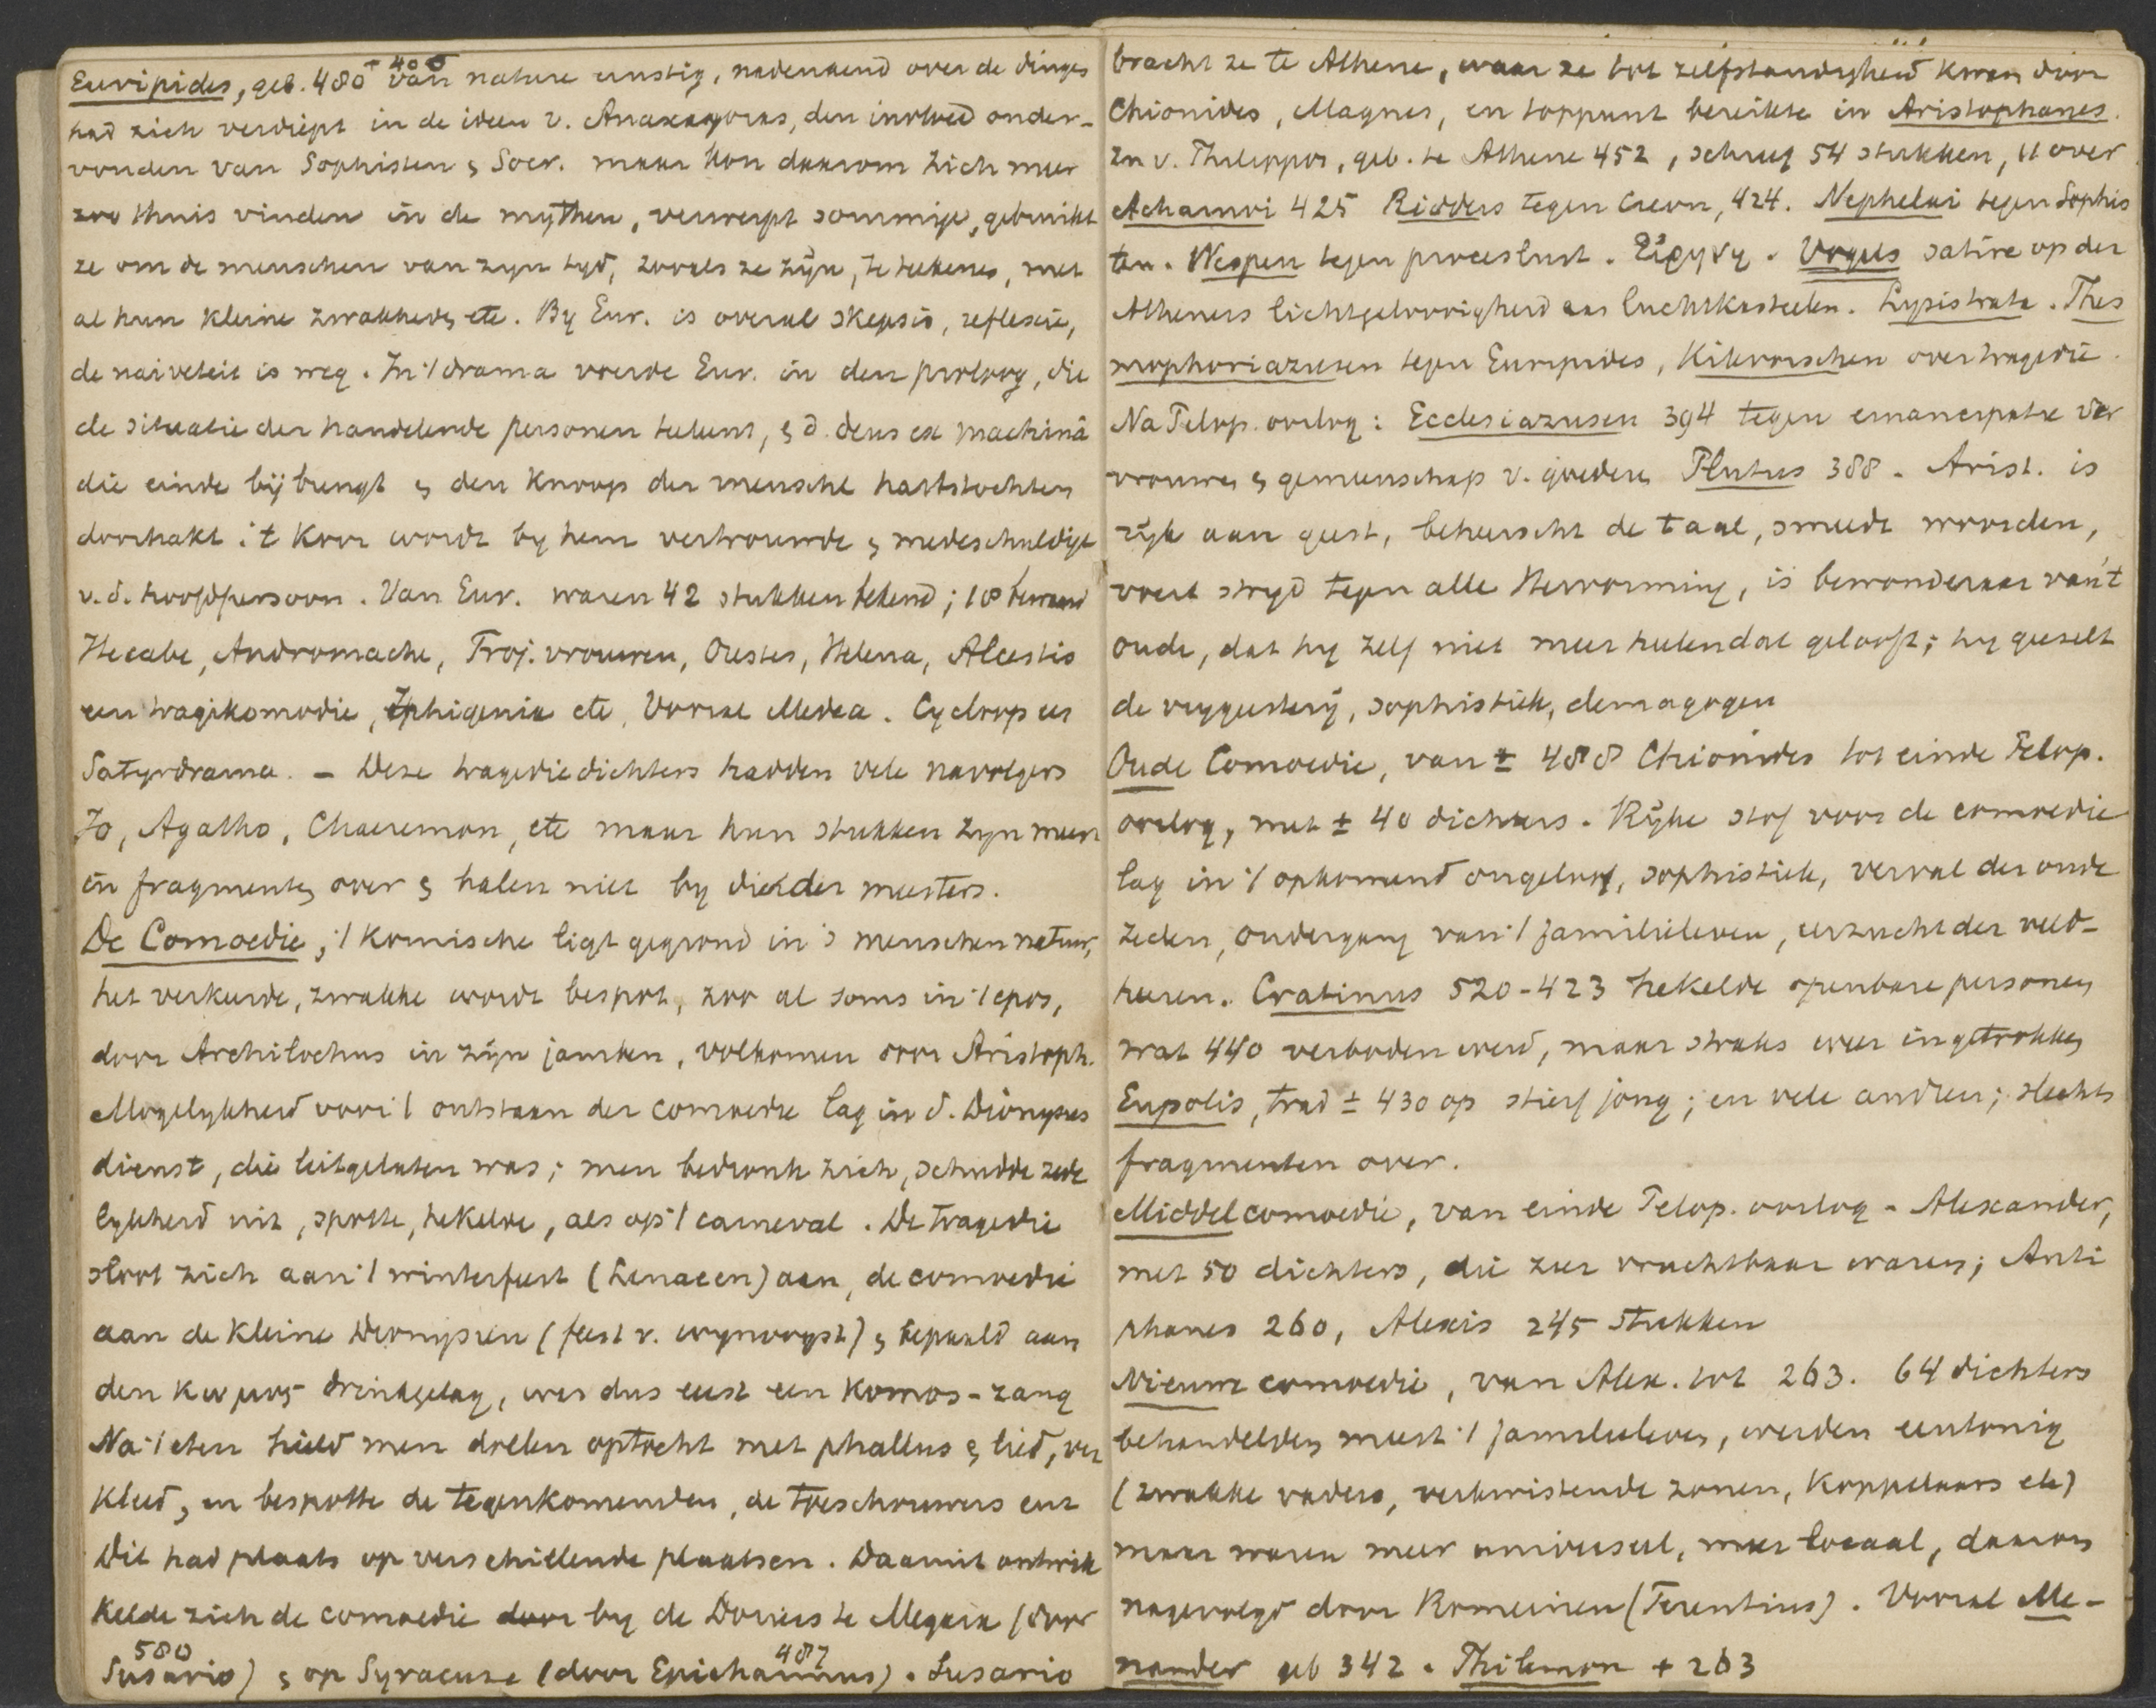 Euripides, geb. 480 - 406 van nature ernstig, nadenkend over de dingen
had zich verdiept in de ideen v. Anaxagoras, den invloed onder-
vonden van Sophisten & Socr. maar kon daarom zich meer
zoo thuis vinden in de mythen, verwerpt sommige, gebruikt
ze om de menschen van zyn tyd, zooals ze zijn, te teekenen, met
al hun kleine zwakheden etc. By Eur. is overal skepsis, reflexie,
de naiveteit is weg. In 't drama voerde Eur. in den proloog, die
de situatie der handelende personen teekent, & d. deus ex machinâ
die einde bijbrengt & den knoop der menschl hartstochten
doorhakt. 't Koor wordt by hem vertrouwde & medeschuldige
v. d. hoofdpersoon. Van Eur. waren 42 stukken bekend; 18 bewaard
Hecabe, Andromache, Troj. vrouwen, Orestes, Helena, Alcestis
een tragikomodie, Iphigenia etc, Vooral Medea. Cycloop een
Satyrdrama. - Deze tragediedichters hadden vele navolgers
Jo, Agatho, Chaeremon, etc maar hun stukken zyn meest
in fragmenten over & halen niet by die der meesters.
De Comoedie; 't komische ligt gegrond in 's menschen natuur,
het verkeerde, zwakke wordt bespot, zoo al soms in 't epos,
door Archilochus in zijn jamben, volkomen door Aristoph.
Mogelykheid voor 't ontstaan der comoedie lag in d. Dionysus
dienst, die uitgelaten was; men bedronk zich, schudde zede
lykheid uit, spotte, hekelde, als op 't carneval. De tragedie
sloot zich aan 't winterfeest (Lenaeen) aan, de comoedie
aan de kleine Dionysien (feest v. wynoogst) & bepaald aan
den κωμος drinkgelag, was dus eerst een komos-zang
Na 't eten hield men dollen optocht met phallus & lied, ver
kleed, en bespotte de tegenkomenden, de toeschouwers enz
Dit had plaats op verschillende plaatsen. Daaruit ontwik
kelde zich de comoedie door by de Doriers te Megara (door
Susario) 580 & op Syracuse (door Epicharmus) 487. Susario
bracht ze te Athene, waar ze tot zelfstandigheid kwam door
Chionides, Magnes, en toppunt bereikte in Aristophanes.
zn v. Philippos, geb. te Athene 452, schreef 54 stukken, 11 over
Acharnoi 425 Ridders tegen Creon, 424. Nephelai tegen Sophis
ten. Wespen tegen proceslust. Εἰρηνη. Vogels satire op der
Atheners lichtgeloovigheid aan luchtkasteelen. Lysistrata. Thes
mophoriazusen tegen Euripides, Kikvorschen over tragedie.
Na Pelop. oorlog: Ecclesiazusen 394 tegen emancipatie der
vrouwen & gemeenschap v. goederen Plutus 388. Arist. is
rijk aan geest, beheerscht de taal, smeedt woorden,
voert stryd tegen alle Hervorming, is bewonderaar van 't
oude, dat hy zelf niet meer heelendal gelooft; hy geeselt
de vrygeestery, sophistiek, demagogen
Oude Comoedie, van ± 488 Chionides tot einde Pelop.
oorlog, met ± 40 dichters. Rijke stof voor de comoedie
lag in 't opkomend ongeloof, sophistiek, verval der oude
zeden, ondergang van 't familieleven, eerzucht der veld-
heeren. Cratinus 520-423 hekelde openbare personen
wat 440 verboden werd, maar straks weer ingetrokken
Eupolis, trad ± 430 op stierf jong; en vele andren; slechts
fragmenten over.
Middelcomoedie, van einde Pelop. oorlog - Alexander,
met 50 dichters, die zeer vruchtbaar waren; Anti
phanes 260, Alexis 245 stukken
Nieuwe comoedie, van Alex. tot 263. 64 dichters
behandelden meest 't familieleven, werden eentonig
(zwakke vaders, verkwistende zonen, koppelaars etc)
maar waren meer universeel, meer locaal, daarom
nagevolgd door Romeinen (Terentius). Vooral Me-
nander geb 342. Philemon + 263